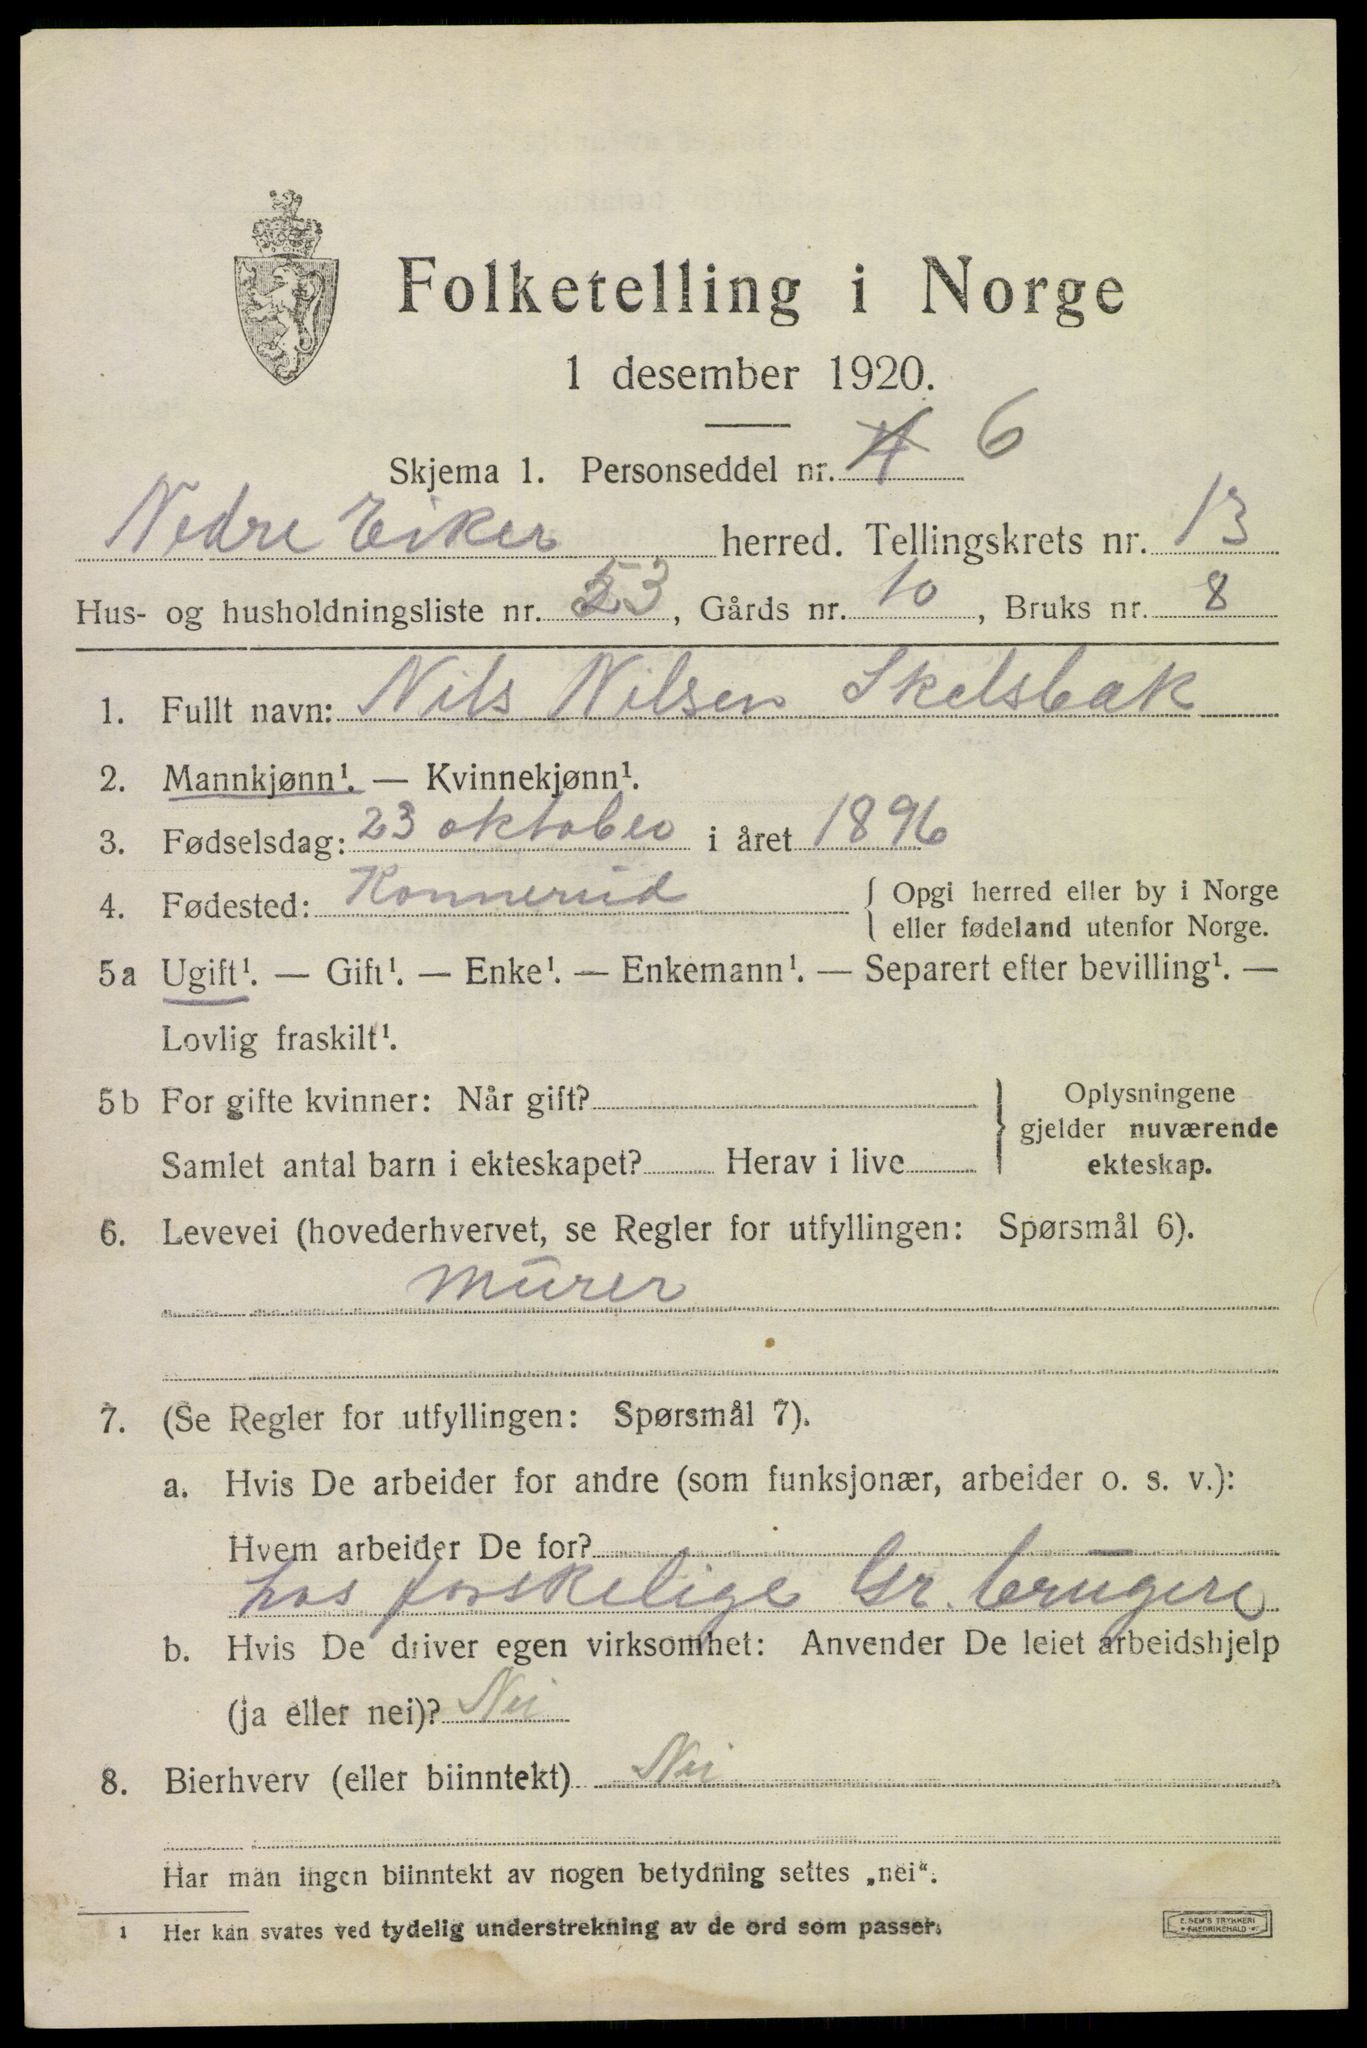 Folketelling i Norge
1 desember 1920.
Skjema 1. Personseddel nr. 4 6
Nedre Eiker herred. Tellingskrets nr. 13
Hus- og husholdningsliste nr. 53, Gårds nr. 10, Bruks nr. 8
1. Fullt navn: Nils Nilsen Skelsbæk
2. Mannkjønn¹. — Kvinnekjønn¹.
3. Fødselsdag: 23 oktober i året 1896
4. Fødested: Konnerud { Opgi herred eller by i Norge
eller fødeland utenfor Norge.
5a Ugift¹. — Gift¹. — Enke¹. — Enkemann¹. — Separert efter bevilling¹. —
Lovlig fraskilt¹.
5b For gifte kvinner: Når gift? } Oplysningene
gjelder nuværende
Samlet antal barn i ekteskapet? Herav i live ekteskap.
6. Levevei (hovederhvervet, se Regler for utfyllingen: Spørsmål 6).
Murer
7. (Se Regler for utfyllingen: Spørsmål 7).
a. Hvis De arbeider for andre (som funksjonær, arbeider o. s. v.):
Hvem arbeider De for?
hos forskelige Gr. brugere
b. Hvis De driver egen virksomhet: Anvender De leiet arbeidshjelp
(ja eller nei)? Nei
8. Bierhverv (eller biinntekt) Nei
Har man ingen biinntekt av nogen betydning settes „nei“.
1 Her kan svares ved tydelig understrekning av de ord som passer.
E. SEM'S TRYKKERI
FREDRIKSHALD